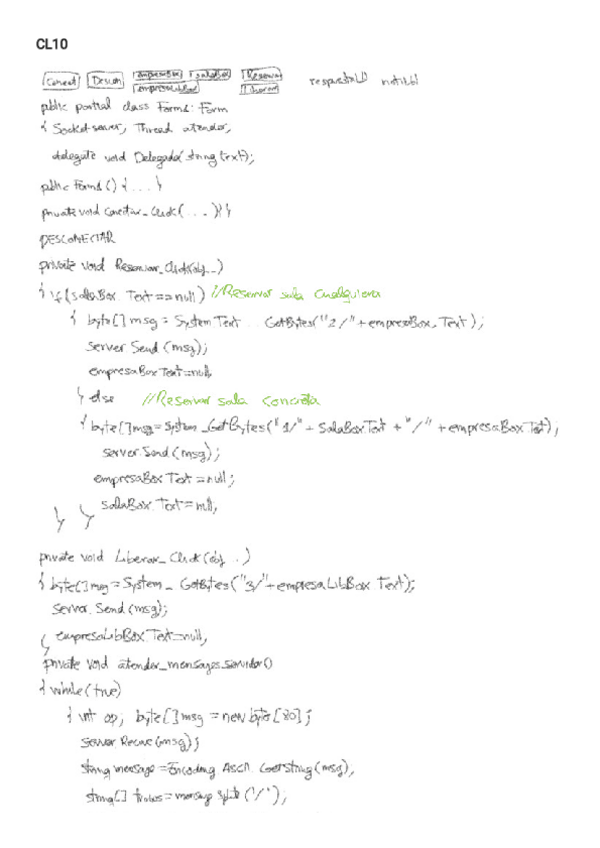 CL10
Conect Descon empresaBox salaBox Reservar respuestaLbl notifLbl
empresaLibBox Liberar
public partial class Form1: Form
{ Socket server; Thread atender;
delegate void Delegado(string text);
public Form1() { ... }
private void Conectar_Click(...){}
DESCONECTAR
private void Reservar_Click(obj...)
{ if(salaBox.Text==null) //Reservar sala cualquiera
{ byte[] msg = System.Text... GetBytes("2/"+empresaBox.Text);
server.Send(msg);
empresaBox.Text=null;
} else //Reservar sala concreta
{ byte[] msg=System_GetBytes("1/"+SalaBox.Text+"/"+empresaBox.Text);
server.Send(msg);
empresaBox.Text=null;
salaBox.Text=null;
} }
private void Liberar_Click(obj...)
{ byte[] msg=System_ GetBytes("3/"+empresaLibBox.Text);
Server.Send(msg);
} empresaLibBox.Text=null;
private void atender_mensajes_servidor()
{ while(true)
{ int op; byte[] msg = new byte[80];
server.Recive(msg);
string mensaje=Encoding.ASCII.GetString(msg);
string[] trozos=mensaje.Split('/');